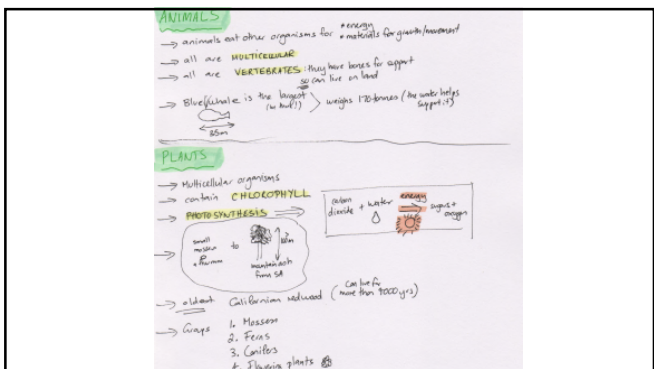 ANIMALS
→ animals eat other organisms for * energy
* materials for growth/movement
→ all are MULTICELLULAR
→ all are VERTEBRATES: they have bones for support
so can live on land
→ Blue whale is the largest
weighs 170 tonnes (the water helps
support it)
35m
PLANTS
→ Multicellular organisms
→ contain CHLOROPHYLL
→ PHOTOSYNTHESIS ⇒
carbon
dioxide + water energy → sugars +
oxygen
→ small
mosses to
mountain ash
from SA
→ oldest Californian redwood (can live for
more than 4000 yrs)
→ Groups 1. Mosses
2. Ferns
3. Conifers
4. Flowering plants